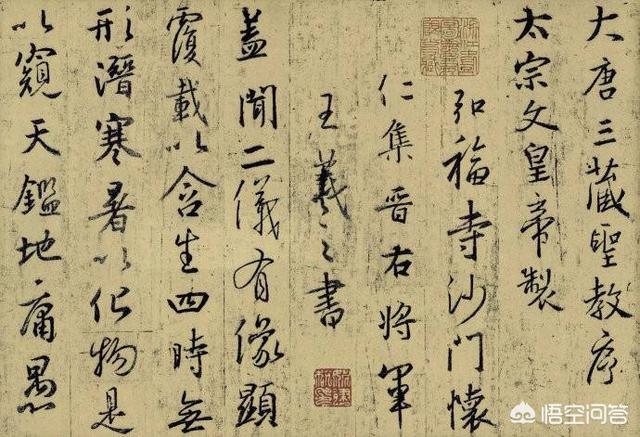 大唐三藏聖教序
太宗文皇帝製
弘福寺沙門懷
仁集晉右將軍
王羲之書
蓋聞二儀有像顯
覆載以含生四時無
形潛寒暑以化物是
以窺天鑑地庸愚
悟空问答